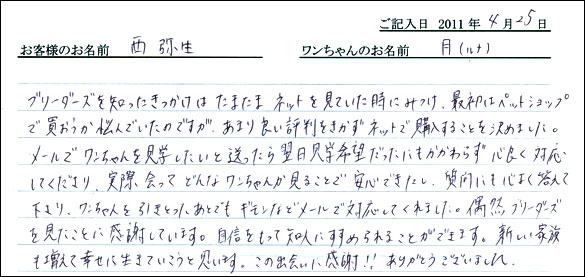 ご記入日 2011 年 4 月 25 日
お客様のお名前 西 弥生 ワンちゃんのお名前 月(ルナ)
ブリーダーズを知ったきっかけは たまたま ネットを見ていた時にみつけ、最初はペットショップ
で買おうか悩んでいたのですが、あまり良い評判をきかずネットで購入することを決めました。
メールでワンちゃんを見学したいと送ったら翌日見学希望だったにもかかわらず心良く対応
してくださり、実際、会ってどんなワンちゃんか見ることで安心できたし、質問にも心よく答えて
下さり、ワンちゃんを引きとったあとでもギモンなどメールで対応してくれました。偶然ブリーダーズ
を見たことに感謝しています。自信をもって知人にすすめられることができます。新しい家族
も増えて幸せに生きていこうと思います。この出会いに感謝!! ありがとうございました。